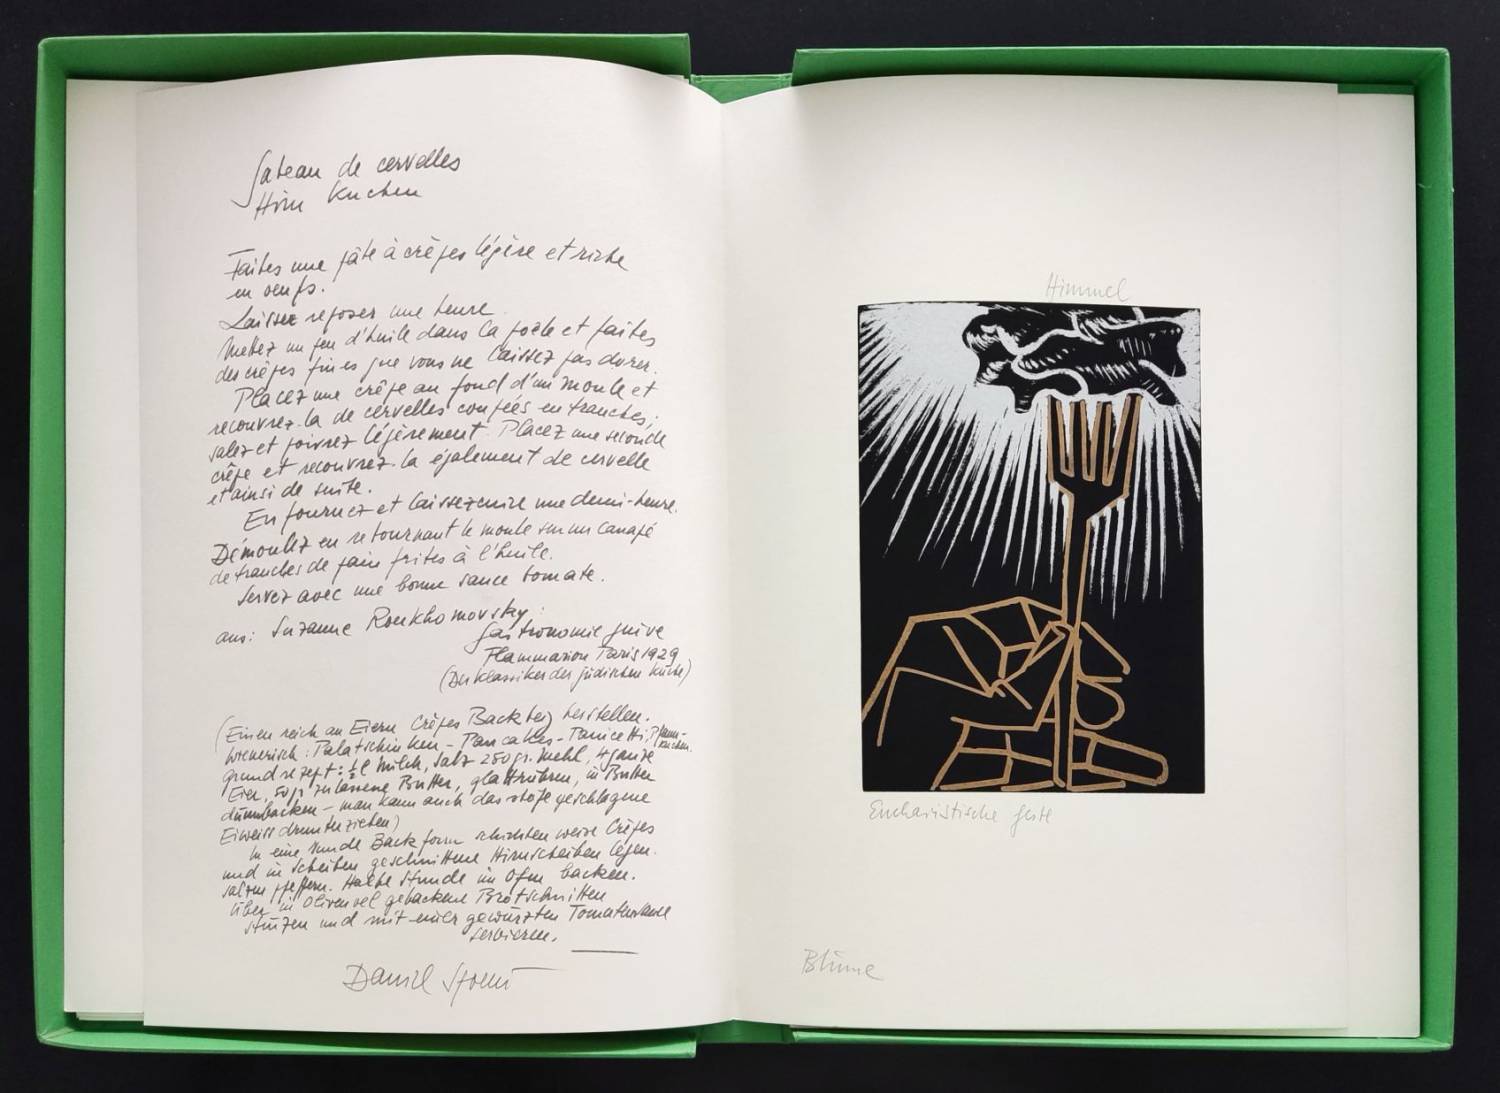 Gateau de cervelles
Hirn Kuchen
Faites une pâte à crêpes légère et riche
en oeufs.
Laissez reposer une heure.
Mettez un peu d'huile dans la poêle et faites
des crêpes fines que vous ne laissez pas dorer.
Placez une crêpe au fond d'un moule et
recouvrez-la de cervelles coupées en tranches;
salez et poivrez légèrement. Placez une seconde
crêpe et recouvrez-la également de cervelle
et ainsi de suite.
Enfournez et laissez cuire une demi-heure.
Démoulez en retournant le moule sur un canapé
de tranches de pain frites à l'huile.
Servez avec une bonne sauce tomate.
aus: Suzanne Roukhomovsky:
Gastronomie juive
Flammarion Paris 1929
(Der Klassiker der jüdischen Küche)
(Einen reich an Eiern Crêpes Backteig herstellen.
wienerisch: Palatschinken - Pancakes -
Grundrezept: ½ l Milch, Salz 250 gr. Mehl, 4 ganze
Eier, 50 gr zerlassene Butter, glattrühren, in Butter
dünnbacken - man kann auch das steife geschlagene
Eiweiss drunterziehen)
In eine runde Backform schichten weise Crêpes
und in Scheiben geschnittene Hirnscheiben legen.
salzen pfeffern. Halbe Stunde im Ofen backen.
Über in Olivenoel gebackene Brotschnitten
stürzen und mit einer gewürzten Tomatensauce
servieren.
Daniel Spoerri
Himmel
Eucharistische Geste
Blume